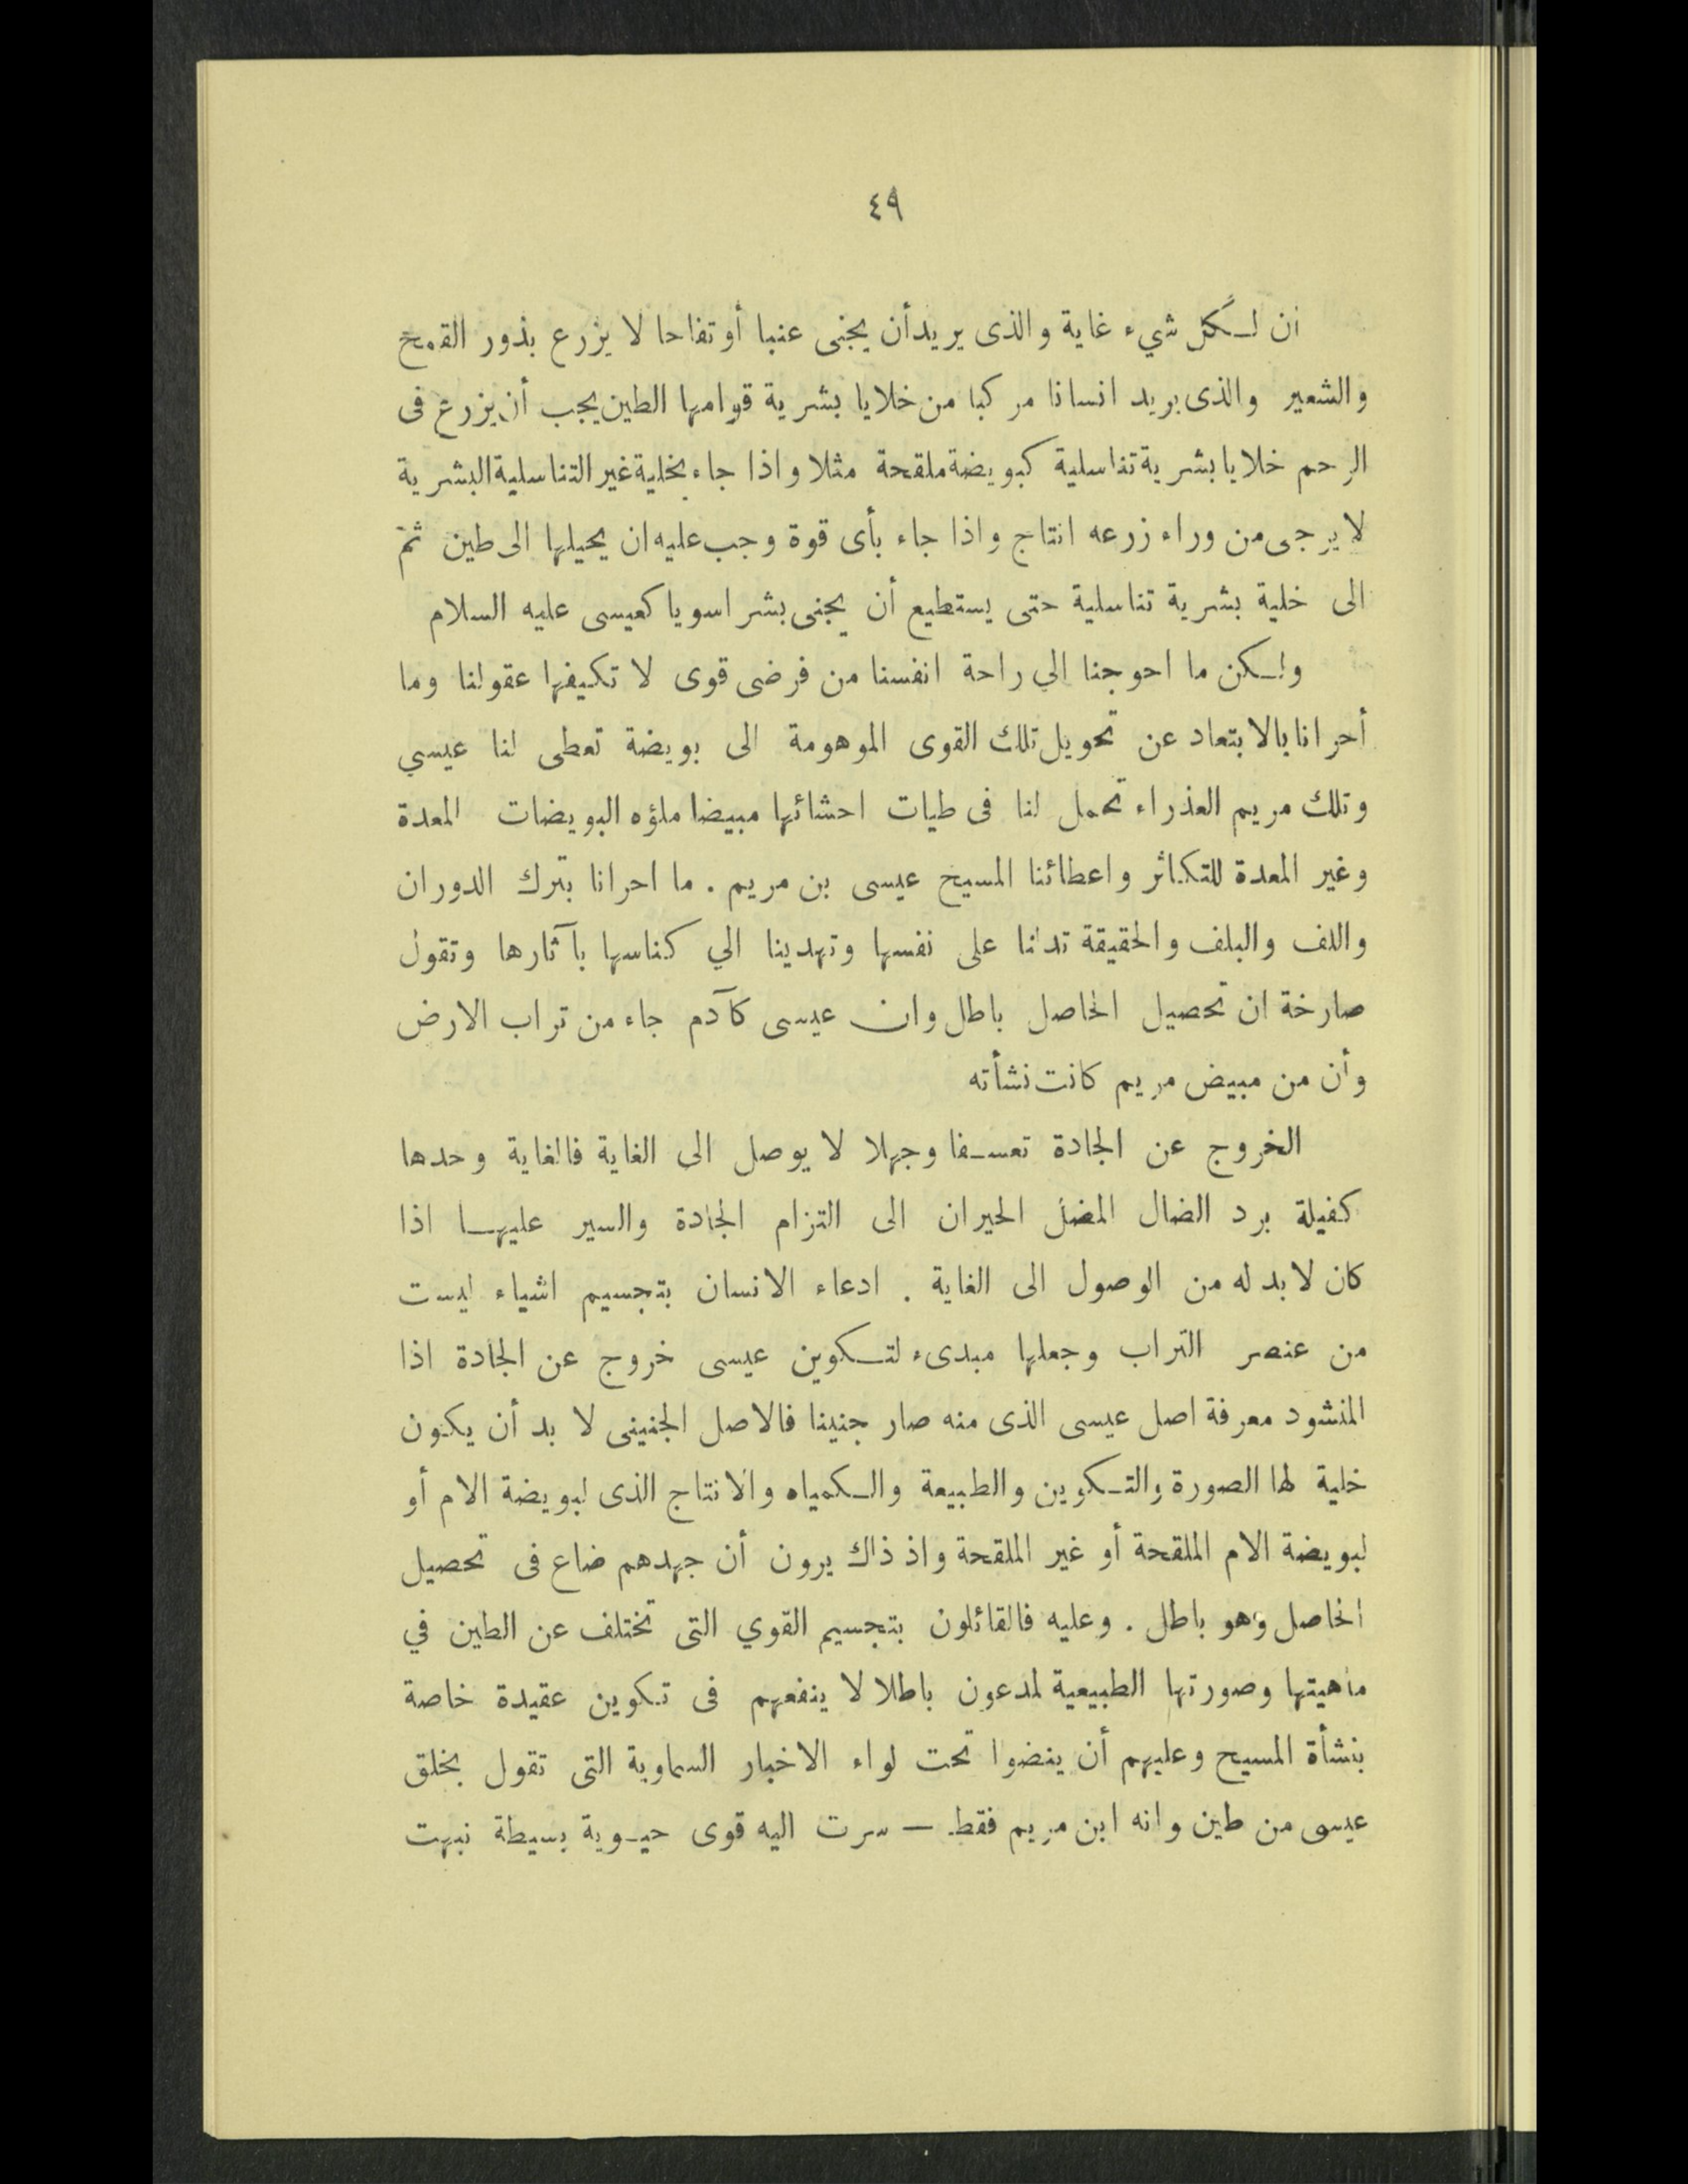 ٤٩
ان لكل شيء غاية والذى يريد أن يجنى عنبا أو تفاحا لا يزرع بذور القمح
والشعير والذى يريد انسانا مركبا من خلايا بشرية قوامها الطين يجب أن يزرع فى
الرحم خلايا بشرية تناسلية كبويضة ملقحة مثلا واذا جاء بخلية غير التناسلية البشرية
لا يرجى من وراء زرعه انتاج واذا جاء بأى قوة وجب عليه ان يحيلها الى طين ثم
الى خلية بشرية تناسلية حتى يستطيع أن يجنى بشرا سويا كعيسى عليه السلام
ولكن ما احوجنا الي راحة انفسنا من فرضى قوى لا تكيفها عقولنا وما
أحرانا بالابتعاد عن تحويل تلك القوى الموهومة الى بويضة تعطى لنا عيسي
وتلك مريم العذراء تحمل لنا فى طيات احشائها مبيضا ملؤه البويضات المعدة
وغير المعدة للتكاثر واعطائنا المسيح عيسى بن مريم . ما احرانا بترك الدوران
واللف والبلف والحقيقة تدلنا على نفسها وتهدينا الي كناسها بآثارها وتقول
صارخة ان تحصيل الحاصل باطل وان عيسى كآدم جاء من تراب الارض
وأن من مبيض مريم كانت نشأته
الخروج عن الجادة تعسفا وجهلا لا يوصل الى الغاية فالغاية وحدها
كفيلة برد الضال المضل الحيران الى التزام الجادة والسير عليها اذا
كان لا بد له من الوصول الى الغاية . ادعاء الانسان بتجسيم اشياء ليست
من عنصر التراب وجعلها مبدىء لتكوين عيسى خروج عن الجادة اذا
المنشود معرفة اصل عيسى الذى منه صار جنينا فالاصل الجنينى لا بد أن يكون
خلية لها الصورة والتكوين والطبيعة والكمياه والانتاج الذى لبويضة الام أو
لبويضة الام الملقحة أو غير الملقحة واذ ذاك يرون أن جهدهم ضاع فى تحصيل
الحاصل وهو باطل . وعليه فالقائلون بتجسيم القوي التى تختلف عن الطين في
ماهيتها وصورتها الطبيعية لمدعون باطلا لا ينفعهم فى تكوين عقيدة خاصة
بنشأة المسيح وعليهم أن ينضوا تحت لواء الاخبار السماوية التى تقول بخلق
عيسى من طين وانه ابن مريم فقط — سرت اليه قوى حيوية بسيطة نبهت